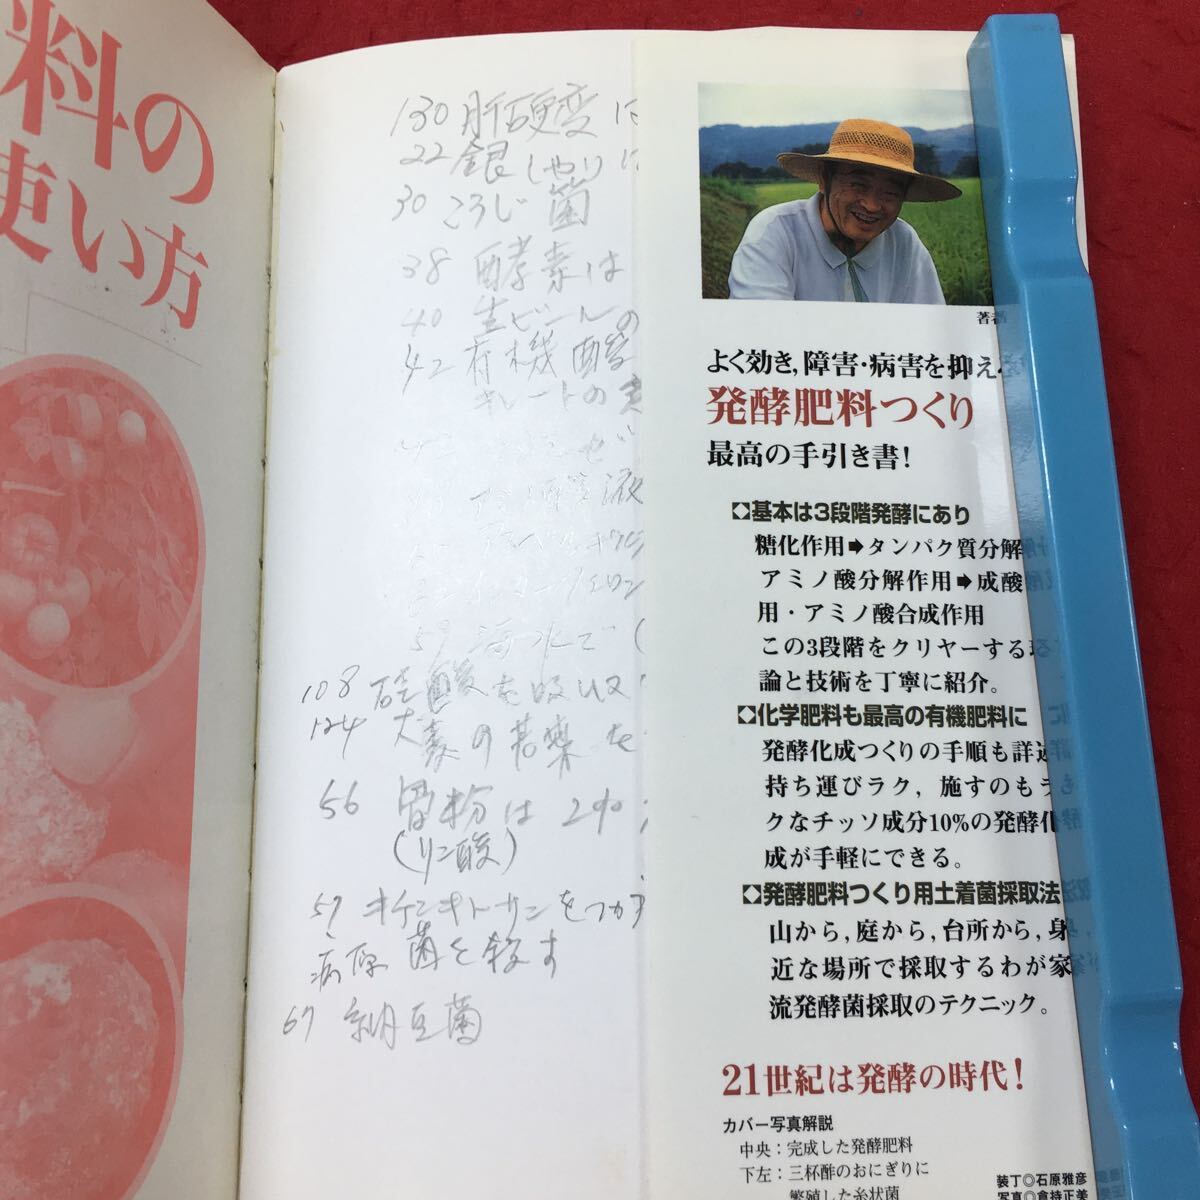 料の
使い方
130 肝硬変に
22 銀しゃりに
30 こうじ菌
38 酵素は
40 生ビールの
42 有機酸
キレートの
液
59 海水で(
108 珪酸を吸収
124 大麦の若葉を
56 骨粉は2%
(リン酸)
57 キチンキトーサンをつかう
病原菌を殺す
67 納豆菌
著者
よく効き,障害・病害を抑える
発酵肥料つくり
最高の手引き書!
基本は3段階発酵にあり
糖化作用➡タンパク質分解
アミノ酸分解作用➡成酸
用・アミノ酸合成作用
この3段階をクリヤーする
論と技術を丁寧に紹介。
化学肥料も最高の有機肥料に
発酵化成つくりの手順も詳述
持ち運びラク,施すのもラ
クなチッソ成分10%の発酵化
成が手軽にできる。
発酵肥料つくり用土着菌採取法
山から,庭から,台所から,身
近な場所で採取するわが家
流発酵菌採取のテクニック。
21世紀は発酵の時代!
カバー写真解説
中央:完成した発酵肥料
下左:三杯酢のおにぎりに
繁殖した糸状菌
装丁◎石原雅彦
写真◎倉持正実